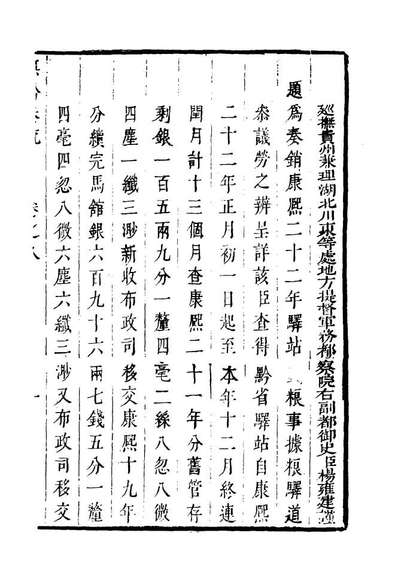 廵撫貴州兼理湖北川東等處地方提督軍務都察院右副都御史臣楊雍建謹
題為奏銷康熈二十二年驛站 糧事據糧驛道
叅議勞之辨呈詳該臣查得黔省驛站自康熈
二十二年正月初一日起至本年十二月終連
閏月計十三個月查康熈二十一年分舊管存
剩銀一百五兩九分一釐四毫二絲八忽八微
四塵一纖三渺新收布政司移交康熈十九年
分續完馬館銀六百九十六兩七錢五分一釐
四毫四忽八微六塵六纖三渺又布政司移交
卷之八